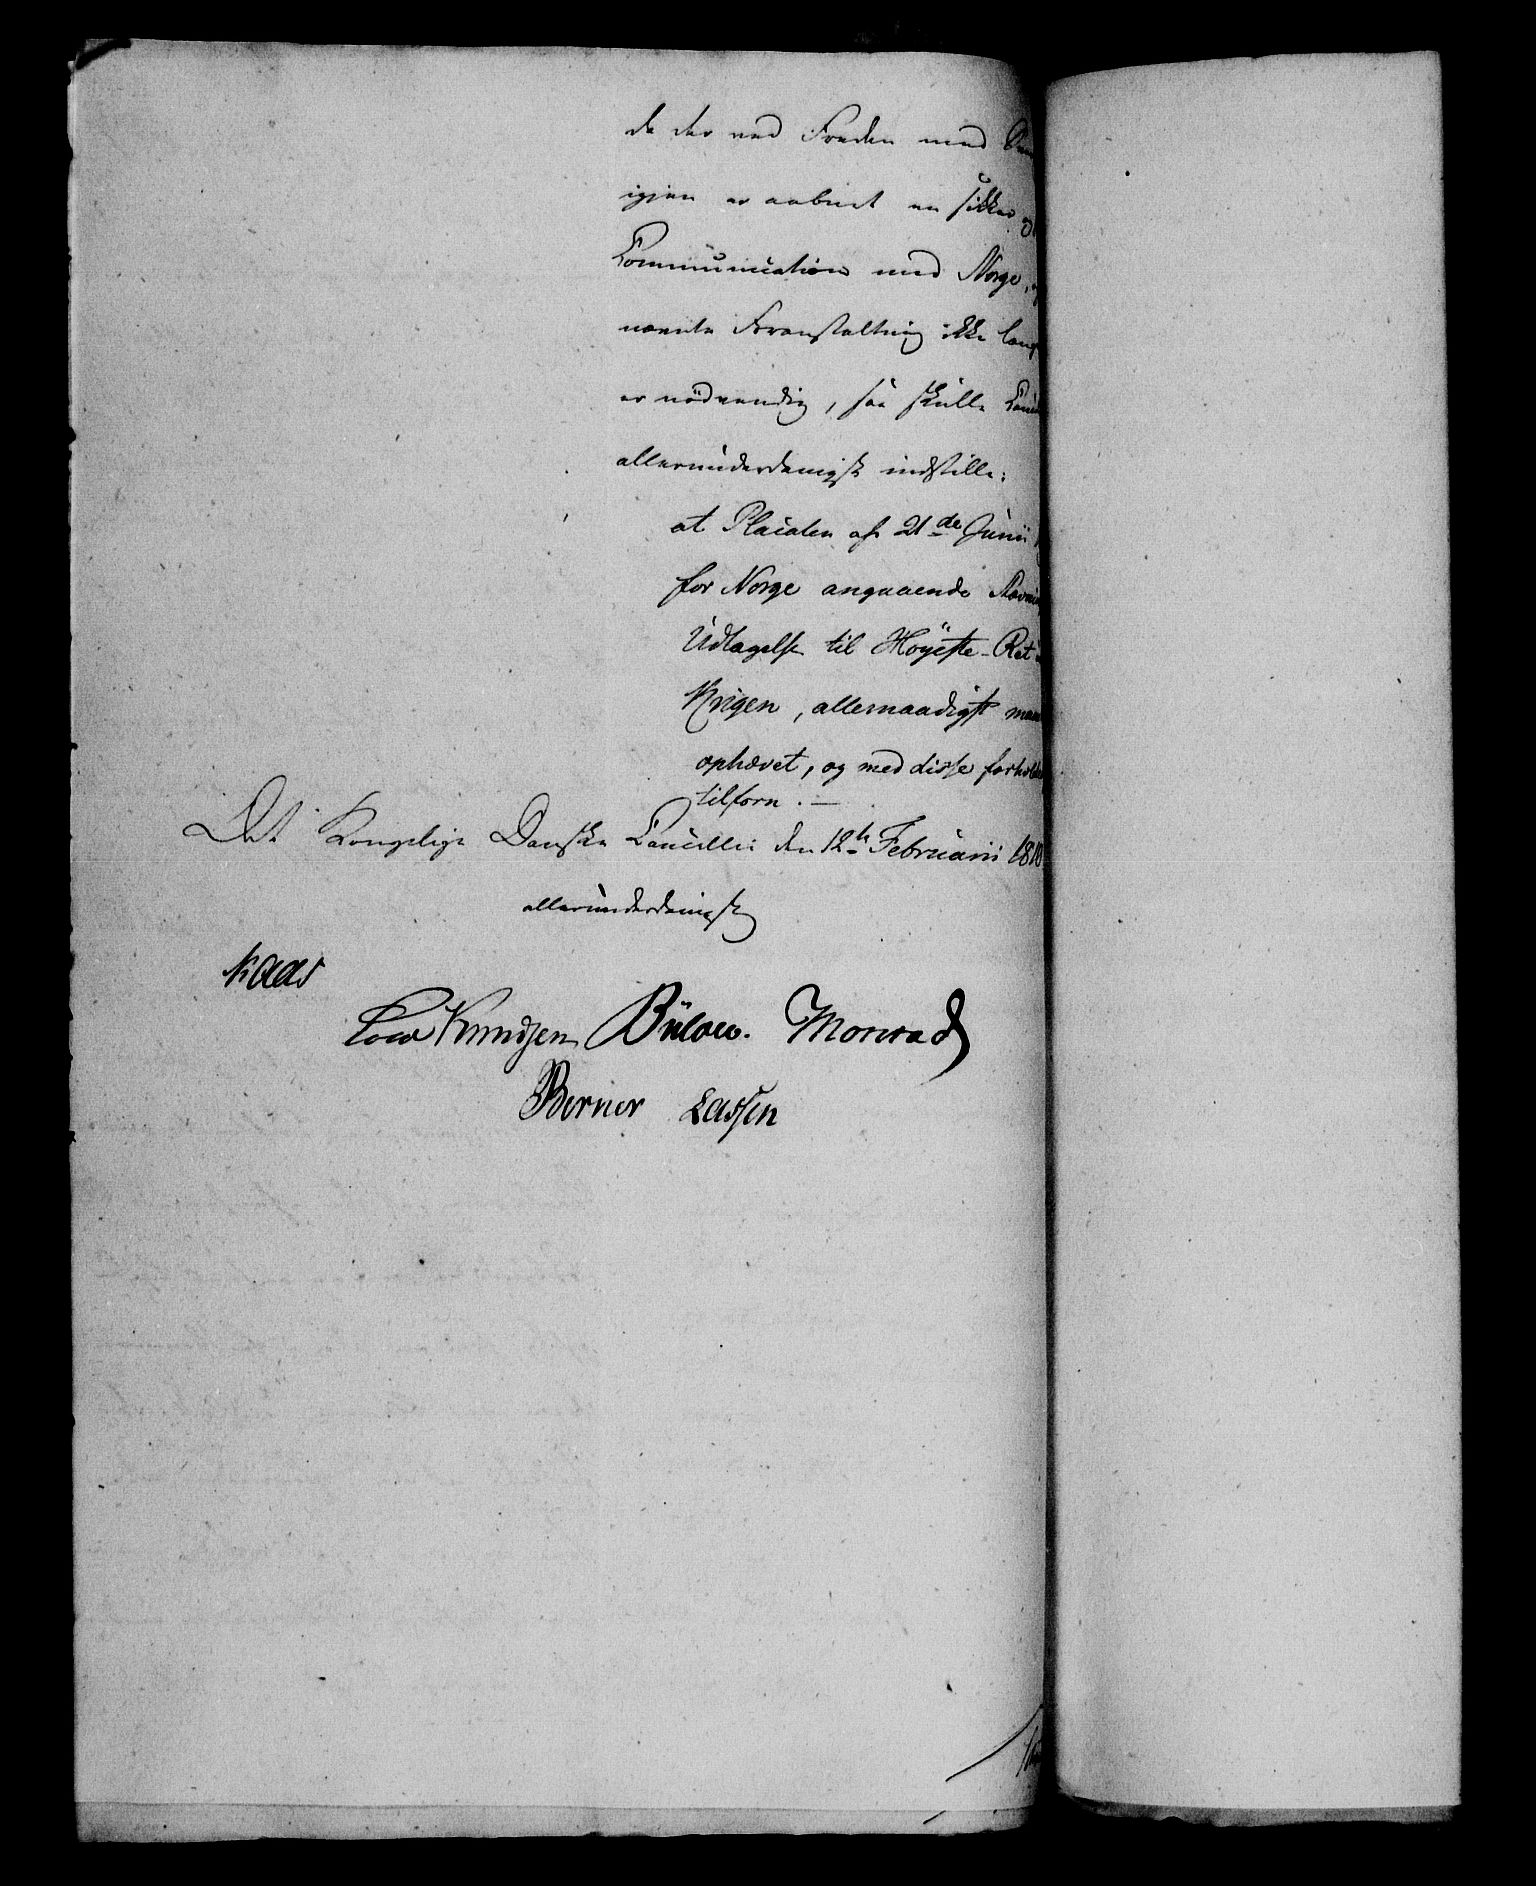 da der ved Freden med
igjen er aabnet en sikker
Communication med Norge,
nævnte Foranstaltning ikke læng
er nödvendig, saa skulle Cancel
allerunderdanigst indstille:
at Placaten af 21de Junii
for Norge angaaende
Udtagelse til Höyeste-Ret
Krigen, allernaadigst maa
ophævet, og med disse forholde
tilforn. —
Det Kongelige Danske Cancellie den 12te Februarii 1810
allerunderdanigst
Kaas
Cold Knudsen Bülow. Monrad
Berner Lassen